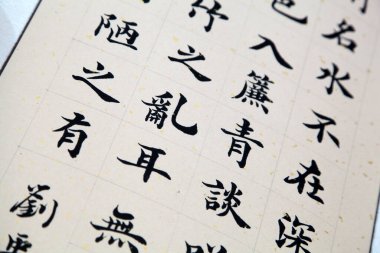 名水不在深
色入簾青談
竹之亂耳無
陋之有
劉